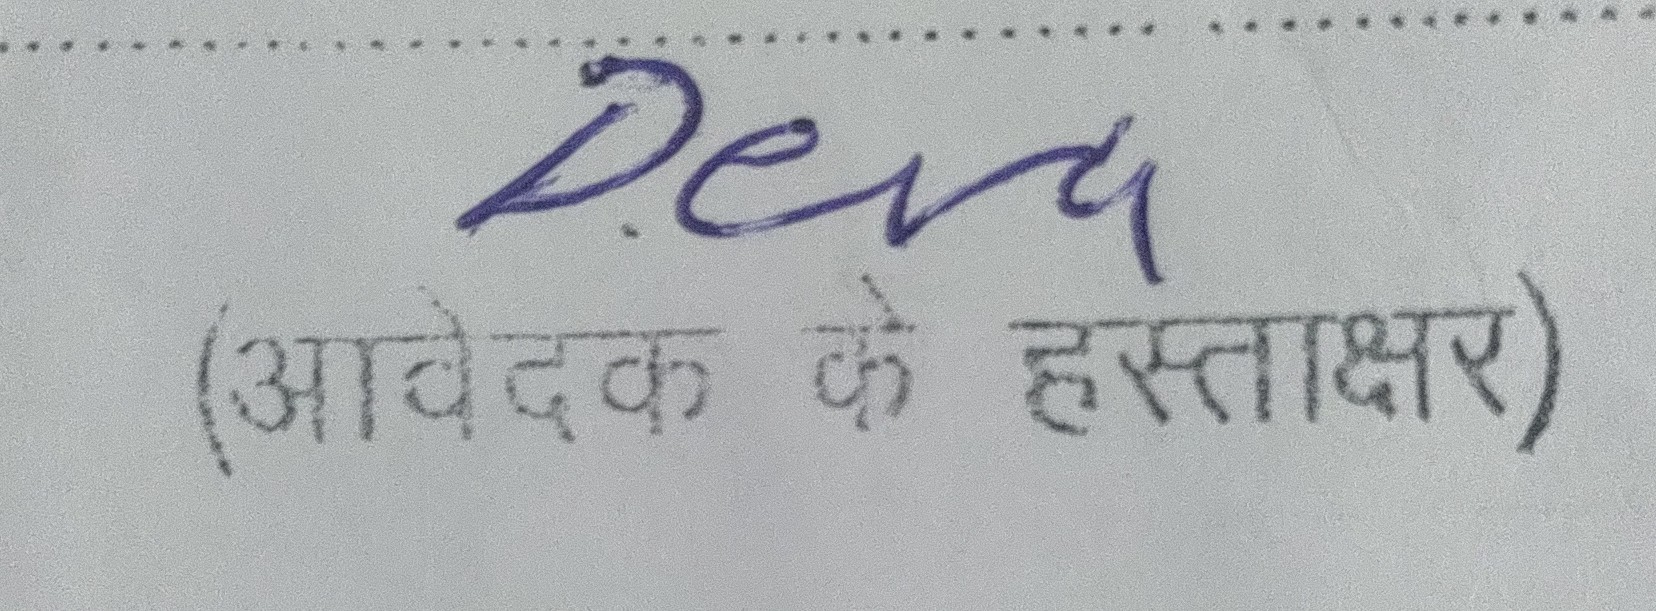 Deva
(आवेदक के हस्ताक्षर)